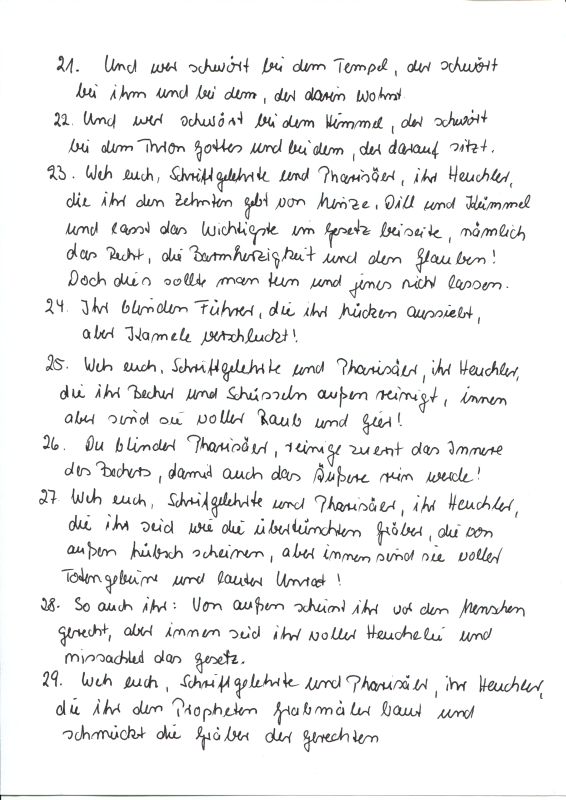 21. Und wer schwört bei dem Tempel, der schwört
bei ihm und bei dem, der darin wohnt
22. Und wer schwört bei dem Himmel, der schwört
bei dem Thron Gottes und bei dem, der darauf sitzt.
23. Weh euch, Schriftgelehrte und Pharisäer, ihr Heuchler,
die ihr den Zehnten gebt von Minze, Dill und Kümmel
und lasst das Wichtigste im Gesetz beiseite, nämlich
das Recht, die Barmherzigkeit und den Glauben!
Doch dies sollte man tun und jenes nicht lassen.
24. Ihr blinden Führer, die ihr Mücken aussiebt,
aber Kamele verschluckt!
25. Weh euch, Schriftgelehrte und Pharisäer, ihr Heuchler,
die ihr Becher und Schüsseln außen reinigt, innen
aber sind sie voller Raub und Gier!
26. Du blinder Pharisäer, reinige zuerst das Innere
des Bechers, damit auch das Äußere rein werde!
27 Weh euch, Schriftgelehrte und Pharisäer, ihr Heuchler,
die ihr seid wie die übertünchten Gräber, die von
außen hübsch scheinen, aber innen sind sie voller
Totengebeine und lauter Unrat!
28. So auch ihr: Von außen scheint ihr vor den Menschen
gerecht, aber innen seid ihr voller Heuchelei und
missachtet das Gesetz.
29. Weh euch, Schriftgelehrte und Pharisäer, ihr Heuchler,
die ihr den Propheten Grabmäler baut und
schmückt die Gräber der Gerechten